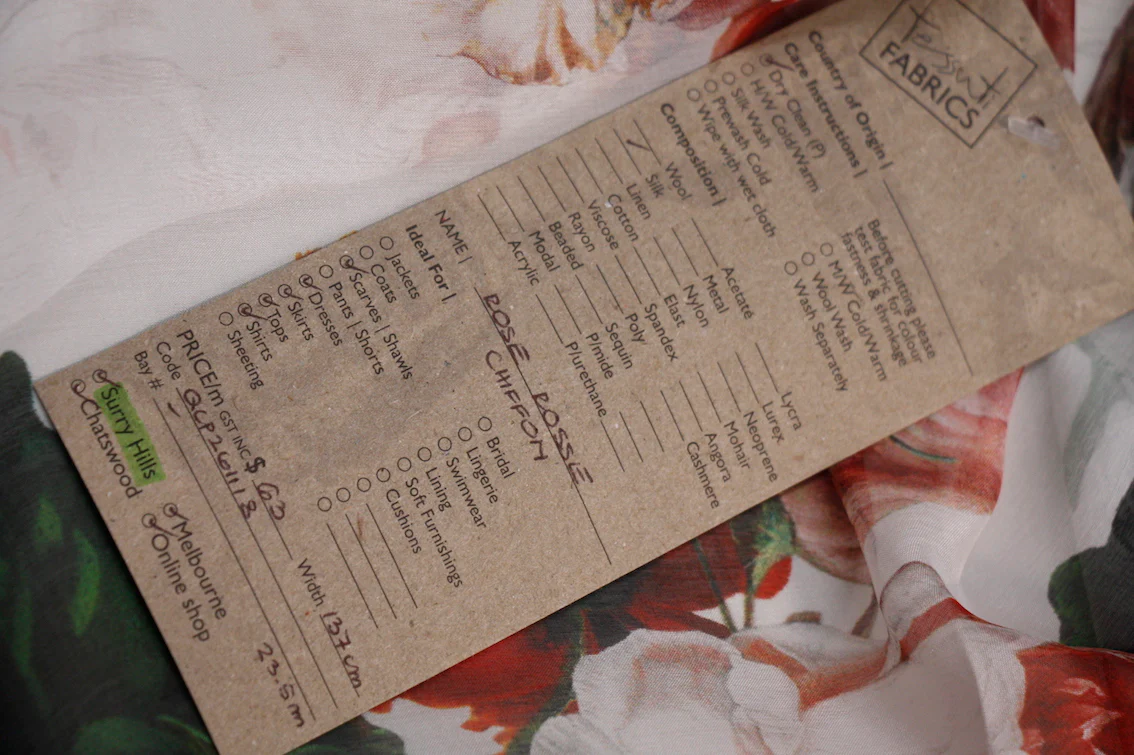 Tessuti
FABRICS
Country of Origin |
Care Instructions |
Dry Clean (P)
H/W Cold/Warm
Silk Wash
Prewash Cold
Wipe with wet cloth
Before cutting please
test fabric for colour
fastness & shrinkage
M/W Cold/Warm
Wool Wash
Wash Separately
Composition |
Wool
Silk
Linen
Cotton
Viscose
Rayon
Beaded
Modal
Acrylic
Acetate
Metal
Nylon
Elast
Spandex
Poly
Sequin
P/mide
P/urethane
Lycra
Lurex
Neoprene
Mohair
Angora
Cashmere
NAME | ROSE ROSSE
CHIFFON
Ideal For |
Jackets
Coats
Scarves | Shawls
Pants | Shorts
Dresses
Skirts
Tops
Shirts
Sheeting
Bridal
Lingerie
Swimwear
Lining
Soft Furnishings
Cushions
PRICE/m GST INC $ 63
Width 137cm
Code QCP261113
Bay # -
23.5m
Surry Hills
Chatswood
Melbourne
Online shop